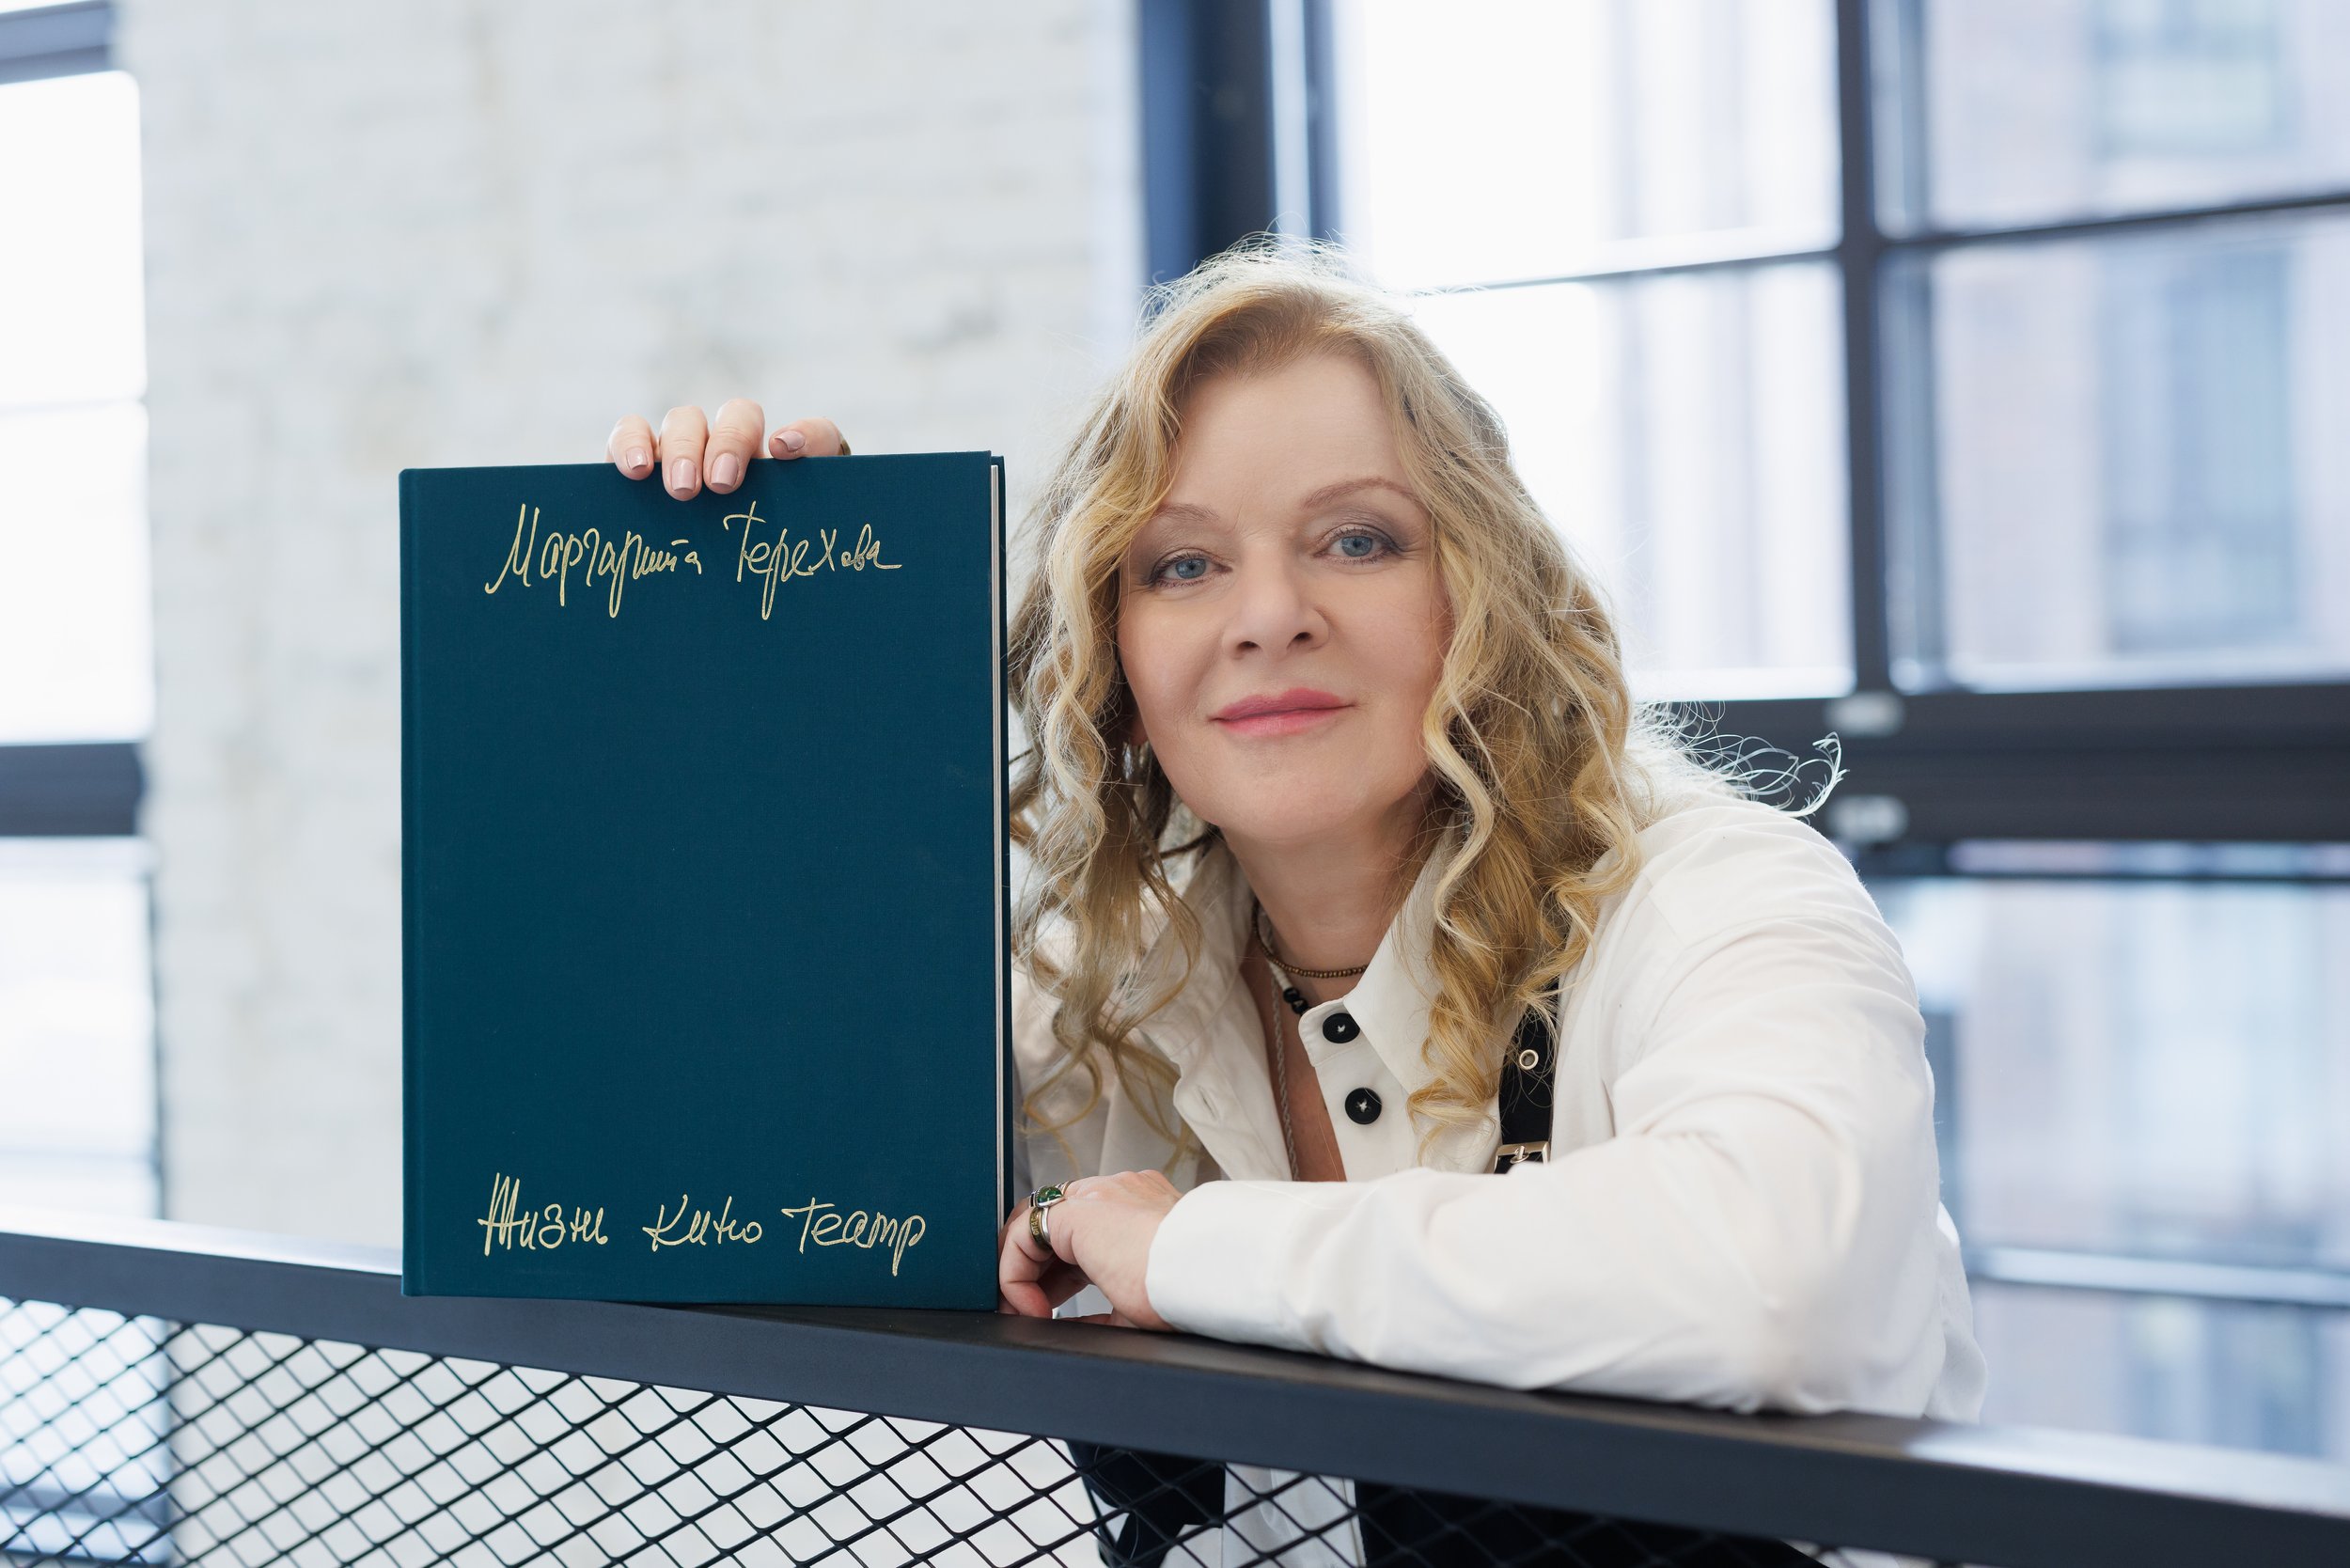 Маргарита Терехова
Жизнь Кино Театр